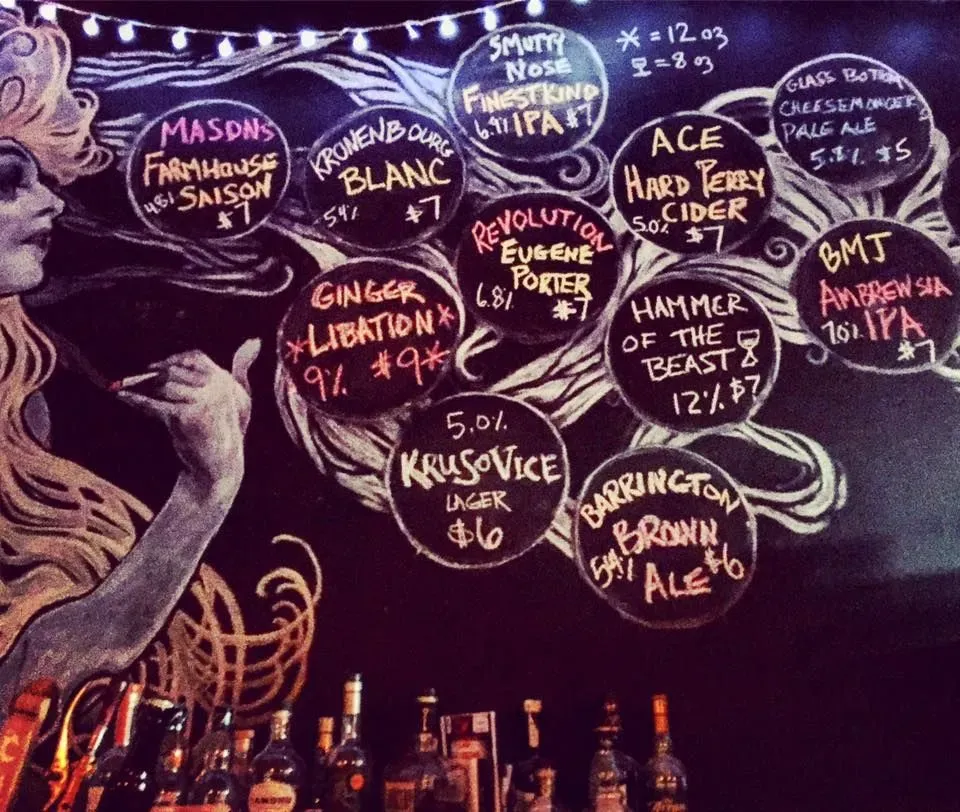 SMUTTY
NOSE
FINESTKIND
6.9% IPA $7
* = 12 oz
= 8 oz
MASONS
FARMHOUSE
4.8% SAISON
$7
KRONENBOURG
BLANC
5.4% $7
ACE
HARD PERRY
CIDER
5.0% $7
GLASS BOTTOM
CHEESEMONGER
PALE ALE
$5
REVOLUTION
EUGENE
PORTER
6.8% $7
BMJ
AMBREWSIA
7.0% IPA
$7
GINGER
*LIBATION*
9% $9*
HAMMER
OF THE
BEAST
12% $7
5.0%
KRUSOVICE
LAGER
$6
BARRINGTON
BROWN
ALE $6